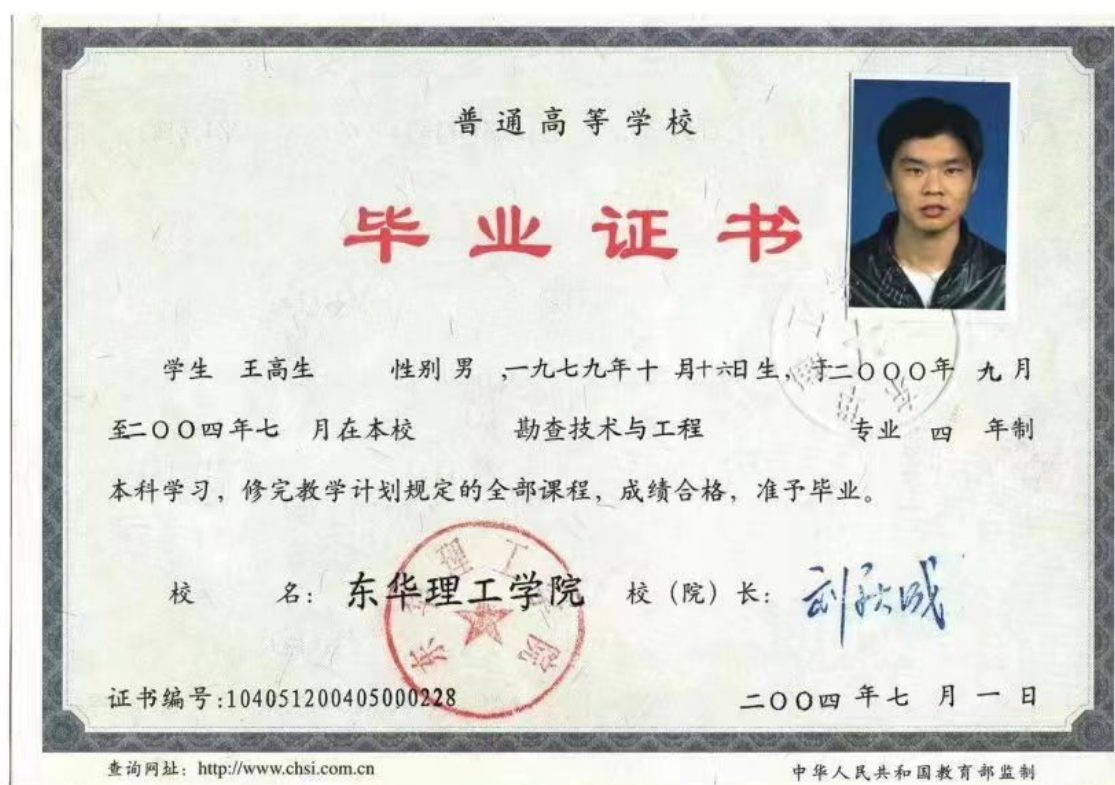 普通高等学校
毕业证书
学生 王高生 性别 男 ,一九七九年十 月十六日 生, 于二〇〇〇年 九 月
至二〇〇四年七 月在本校 勘查技术与工程 专业 四 年制
本科学习, 修完教学计划规定的全部课程, 成绩合格, 准予毕业。
校 名: 东华理工学院 校 (院) 长:
东华理工学院
证书编号:104051200405000228 二〇〇四 年七 月 一 日
查询网址: http://www.chsi.com.cn 中华人民共和国教育部监制